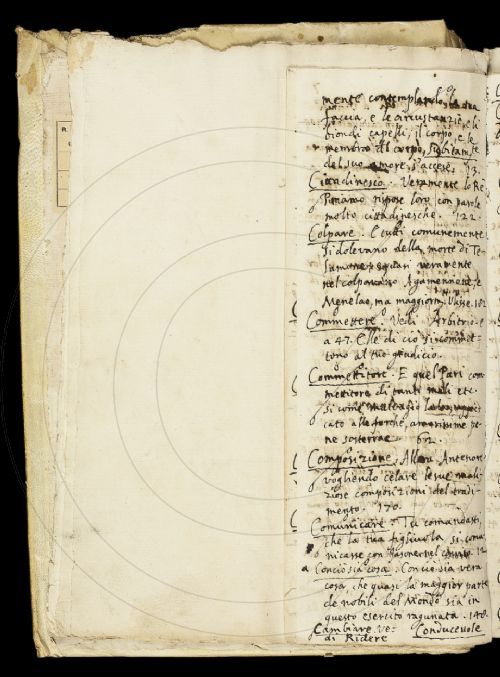 mente contemplando la sua
faccia, e le circustanzie, e li
biondi capelli, il corpo, e le
membra del corpo, subitamte
del suo amore s'accese. 13.
Cittadinesco. Veramente lo Re
Priamo rispose loro con parole
molto cittadinesche. 122.
Colpare. E tutti comunemente
si dolevano della morte di Te
quasi veramente
nel colpavano Agamennone, e
Menelao, ma maggiorm. Ulisse. 182
Commettere. Vedi Arbitrio
a 47. Elle di ciò si commet-
tono al tuo giudicio.
Commettitore. E quel Pari com
mettitore di tanti mali etc.
si come malvagio
cato alle forche, amarissime pe
ne sosterrae 62.
Composizione. Allora Antenore
vogliendo celare le sue mali
ziose composizioni del tradi
mento. 170.
Comunicare. Tu comandasti,
che la tua figliuola si comu
nicasse con 12
a Conciò sia cosa. Conciò sia vera
cosa che quasi la maggior parte
de nobili del Mondo sia in
questo esercito ragunata. 148.
Cambiare. Ve: Conducevole
di Ridere
R.